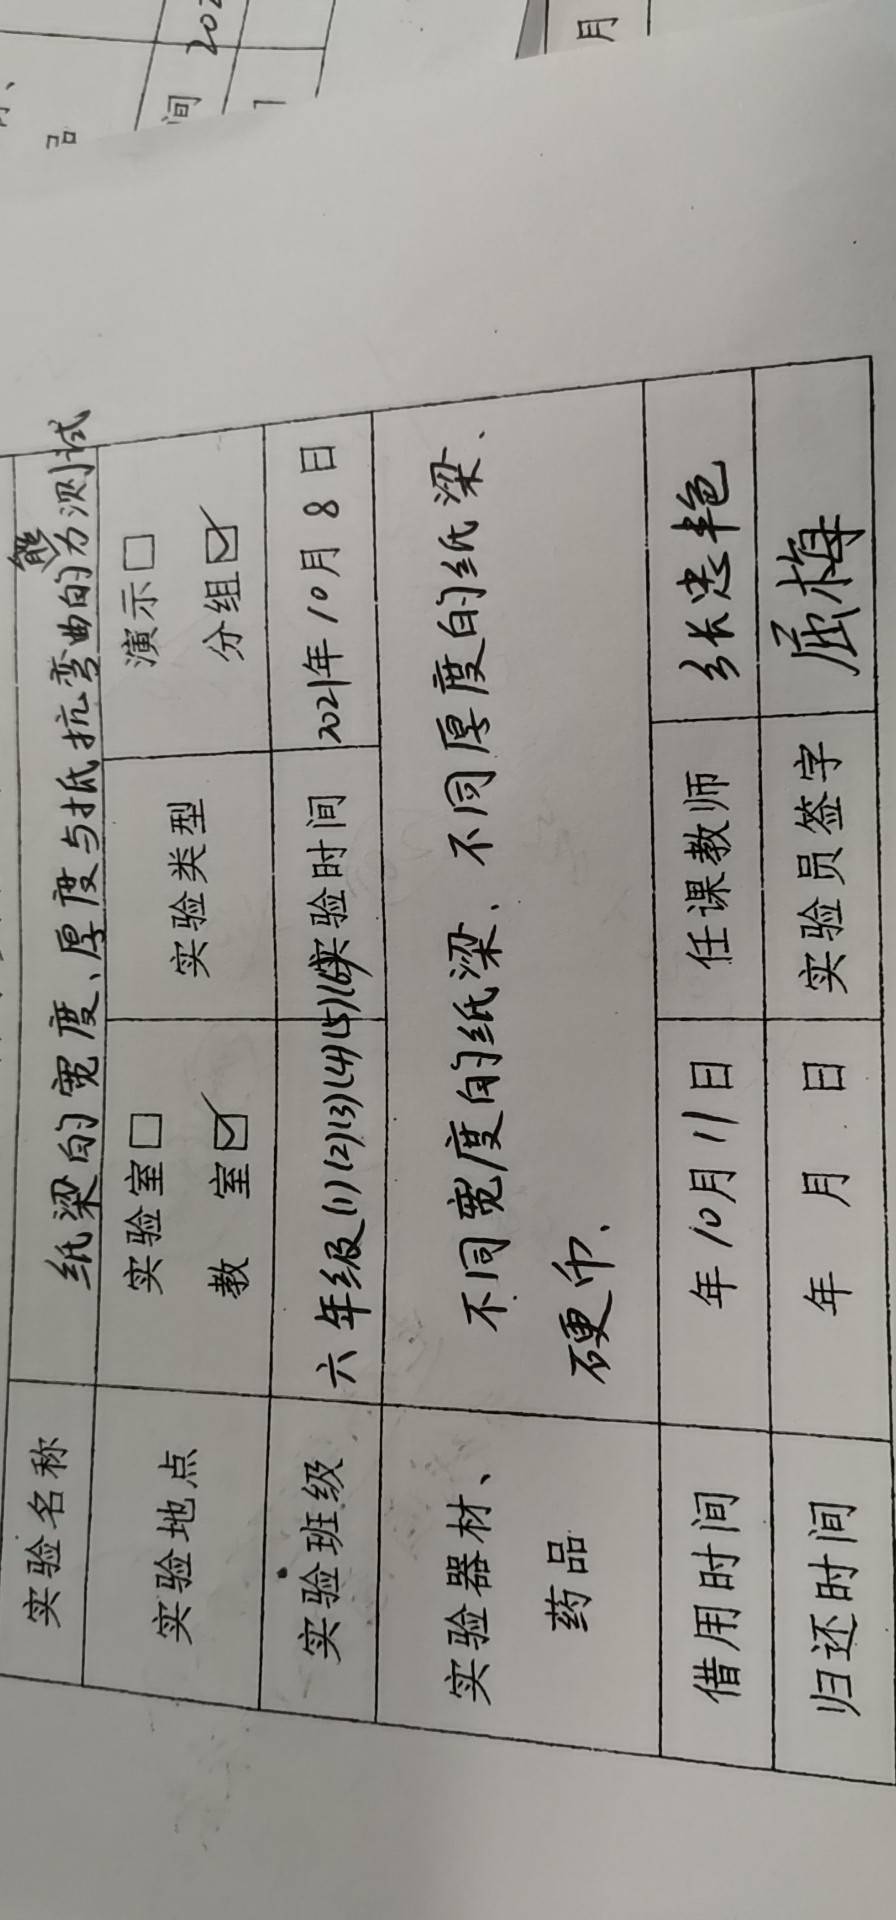 实验名称 纸梁的宽度、厚度与抵抗弯曲的能力测试
实验地点 实验室□ 教 室☑ 实验类型 演示□ 分组☑
实验班级 六年级(1)(2)(3)(4)(5)(6) 实验时间 2021年10月8日
实验器材、 不同宽度的纸梁、不同厚度的纸梁、
药品 硬币、
借用时间 年10月11日 任课教师 张忠艳
归还时间 年 月 日 实验员签字 屈梅
品
间 202
月